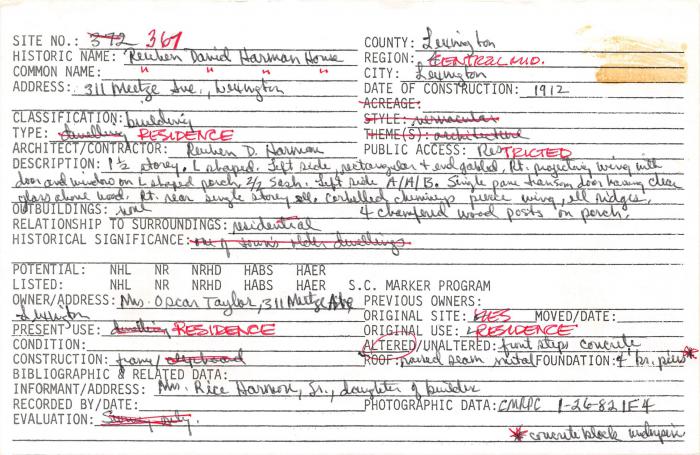 SITE NO.: 372 367 COUNTY: Lexington
HISTORIC NAME: Reuben David Harman House REGION: CENTRAL MID.
COMMON NAME: " " " " CITY: Lexington
ADDRESS: 311 Meetze Ave., Lexington DATE OF CONSTRUCTION: 1912
ACREAGE:
CLASSIFICATION: building STYLE: vernacular
TYPE: dwelling RESIDENCE THEME(S): architecture
ARCHITECT/CONTRACTOR: Reuben D. Harman PUBLIC ACCESS: RESTRICTED
DESCRIPTION: 1½ storey, L shaped. Left side, rectangular + end gabled, Rt. projecting wing with
door and window on L shaped porch, 2/2 sash. Left side A/A/B. Single pane transom, door having clear
glass above wood. Rt. rear single storey ell. Corbelled chimneys pierce wing, ell ridges,
OUTBUILDINGS: none 4 chamfered wood posts on porch.
RELATIONSHIP TO SURROUNDINGS: residential
HISTORICAL SIGNIFICANCE: one of town's older dwellings
POTENTIAL: NHL NR NRHD HABS HAER
LISTED: NHL NR NRHD HABS HAER S.C. MARKER PROGRAM
OWNER/ADDRESS: Mrs. Oscar Taylor, 311 Meetze Ave PREVIOUS OWNERS:
Lexington ORIGINAL SITE: YES MOVED/DATE:
PRESENT USE: dwelling RESIDENCE ORIGINAL USE: RESIDENCE
CONDITION: ALTERED/UNALTERED: front steps concrete
CONSTRUCTION: frame/ clapboard ROOF: raised seam metal FOUNDATION: 4' br. piers*
BIBLIOGRAPHIC & RELATED DATA:
INFORMANT/ADDRESS: Mrs. Rice Harmon, Sr., daughter of builder
RECORDED BY/DATE: PHOTOGRAPHIC DATA: CMRPC 1-26-82 1F4
EVALUATION: Survey only.
* concrete block underpin